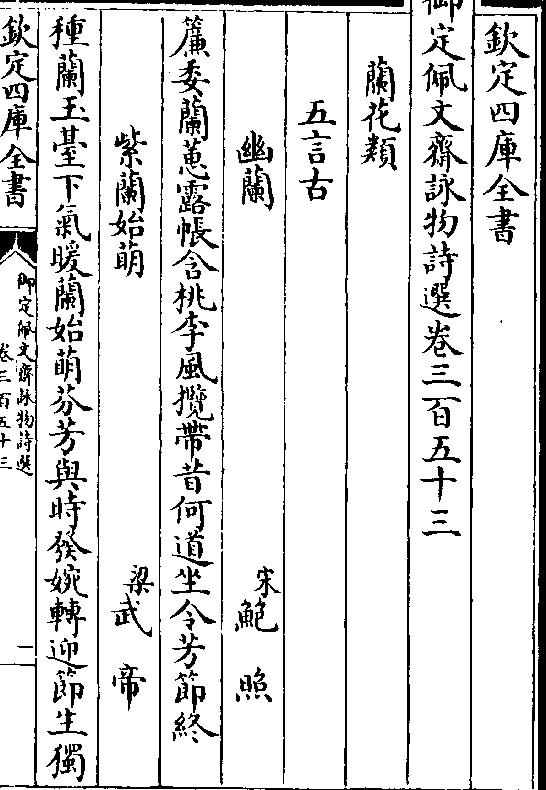 欽定四庫全書
御定佩文齋詠物詩選卷三百五十三
蘭花類
五言古
幽蘭 宋鮑照
簾委蘭蕙露帳含桃李風攬帶昔何道坐令芳節終
紫蘭始萌 梁武帝
種蘭玉臺下氣暖蘭始萌芬芳與時發婉轉迎節生獨
欽定四庫全書
御定佩文齋詠物詩選
卷三百五十三
一